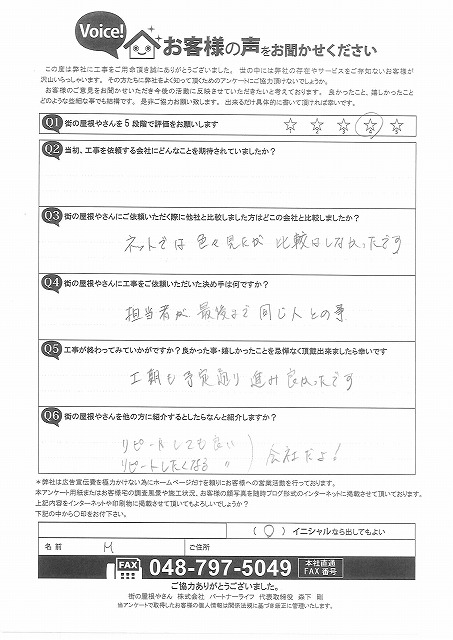 Voice!
お客様の声をお聞かせください
この度は弊社に工事をご用命頂き誠にありがとうございました。世の中には弊社の存在やサービスをご存知ないお客様が
沢山いらっしゃいます。その方たちに弊社をよく知って頂くためのアンケートにご協力頂けないでしょうか?
お客様のご意見をお聞かせいただき今後の活動に反映させていただきたいと考えております。良かったこと、嬉しかったこと
どのような些細な事でも結構です。是非ご協力お願い致します。出来るだけ具体的に書いて頂ければ幸いです。
Q1 街の屋根やさんを5段階で評価をお願いします ☆1 ☆2 ☆3 ☆4 ☆5
Q2 当初、工事を依頼する会社にどんなことを期待されていましたか?
Q3 街の屋根やさんにご依頼いただく際に他社と比較しました方はどこの会社と比較しましたか?
ネットでは色々見たが比較はしなかったです
Q4 街の屋根やさんに工事をご依頼いただいた決め手は何ですか?
担当者が最後まで同じ人との事
Q5 工事が終わってみていかがですか?良かった事・嬉しかったことを忌憚なく頂戴出来ましたら幸いです
工期も予定通り進み良かったです
Q6 街の屋根やさんを他の方に紹介するとしたらなんと紹介しますか?
リピートしても良い
リピートしたくなる 〃 ) 会社だよ!
*弊社は広告宣伝費を極力かけない為にホームページだけを頼りにお客様への営業活動を行っております。
本アンケート用紙またはお客様宅の調査風景や施工状況、お客様の顔写真を随時ブログ形式のインターネットに掲載させて頂いております。
上記内容をインターネットや印刷物に掲載させて頂いてもよろしいでしょうか?
下記の中から〇印をお付下さい。
(〇)イニシャルなら出してもよい
名前 M ご住所
FAX 048-797-5049 本社直通
FAX番号
ご協力ありがとうございました。
街の屋根やさん 株式会社 パートナーライフ 代表取締役 森下 剛
当アンケートで取得したお客様の個人情報は関係法規に基づき厳正に管理いたします。